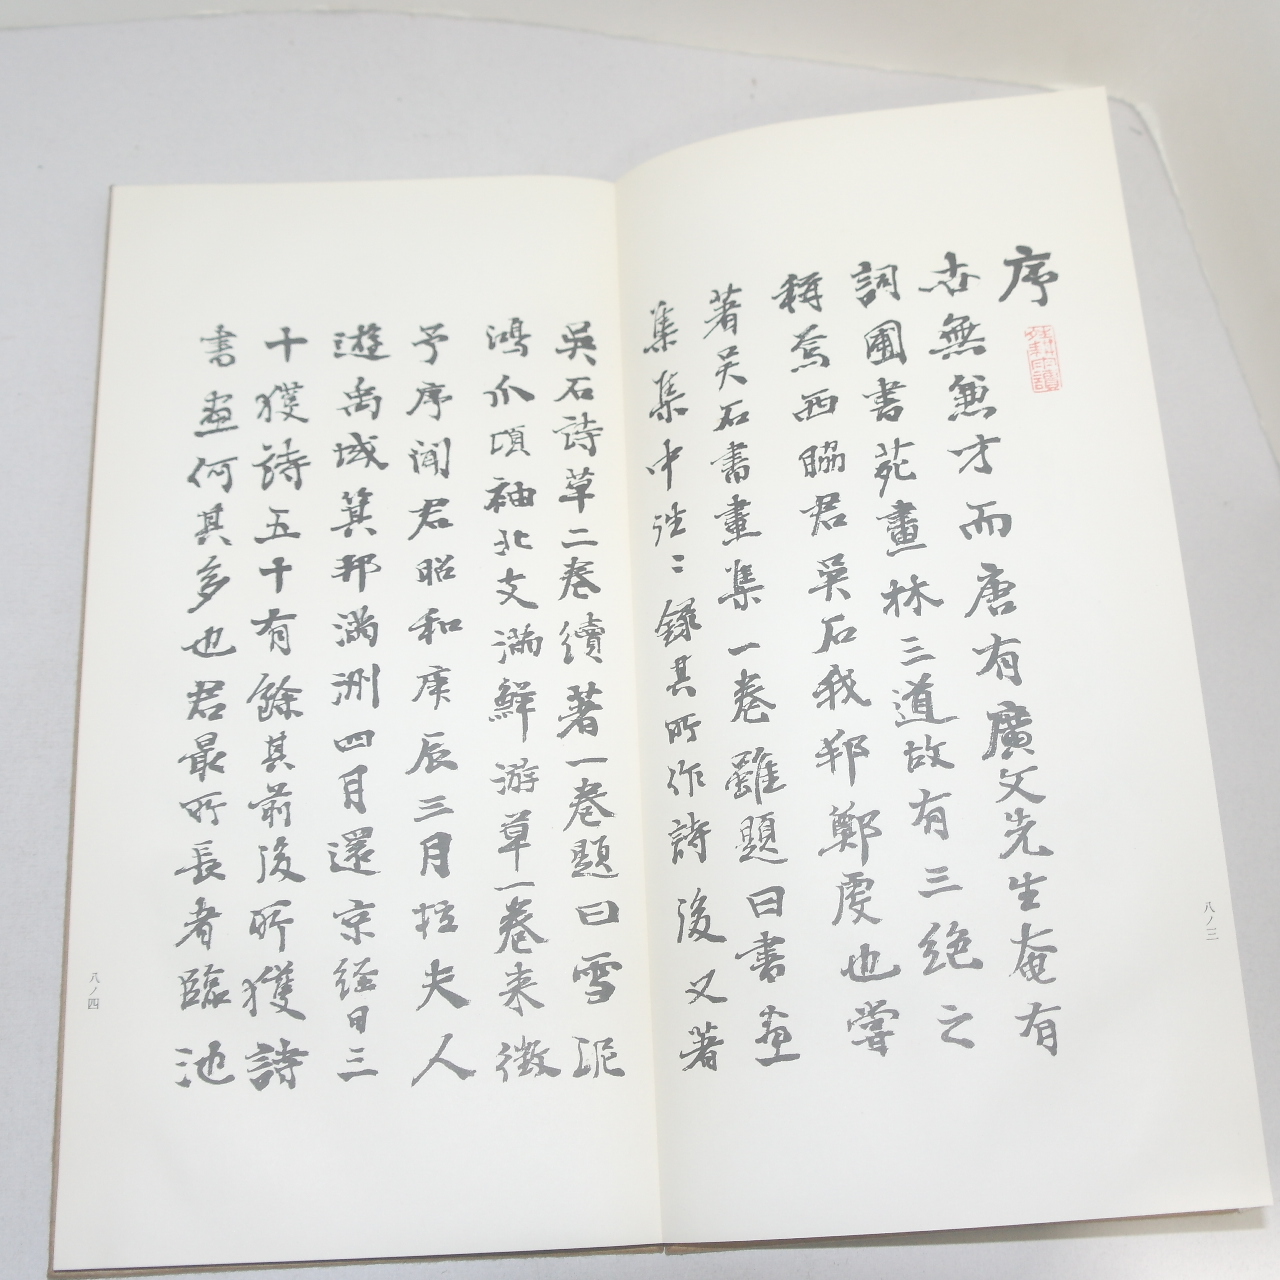 序
古無兼才而唐有廣文先生奄有
詞圃書苑畫林三道故有三絶之
稱焉西脇君吳石我邦鄭虔也嘗
著吳石書畫集一卷雖題曰書画
集集中往〻錄其所作詩後又著
八ノ三
吳石詩草二卷續著一卷題曰雪泥
鴻爪項袖北支満鮮游草一卷来徴
予序聞君昭和庚辰三月拉夫人
遊禹域箕邦満洲四月還京経日三
十獲詩五十有餘其前後所獲詩
書画何其多也君最所長者臨池
八ノ四